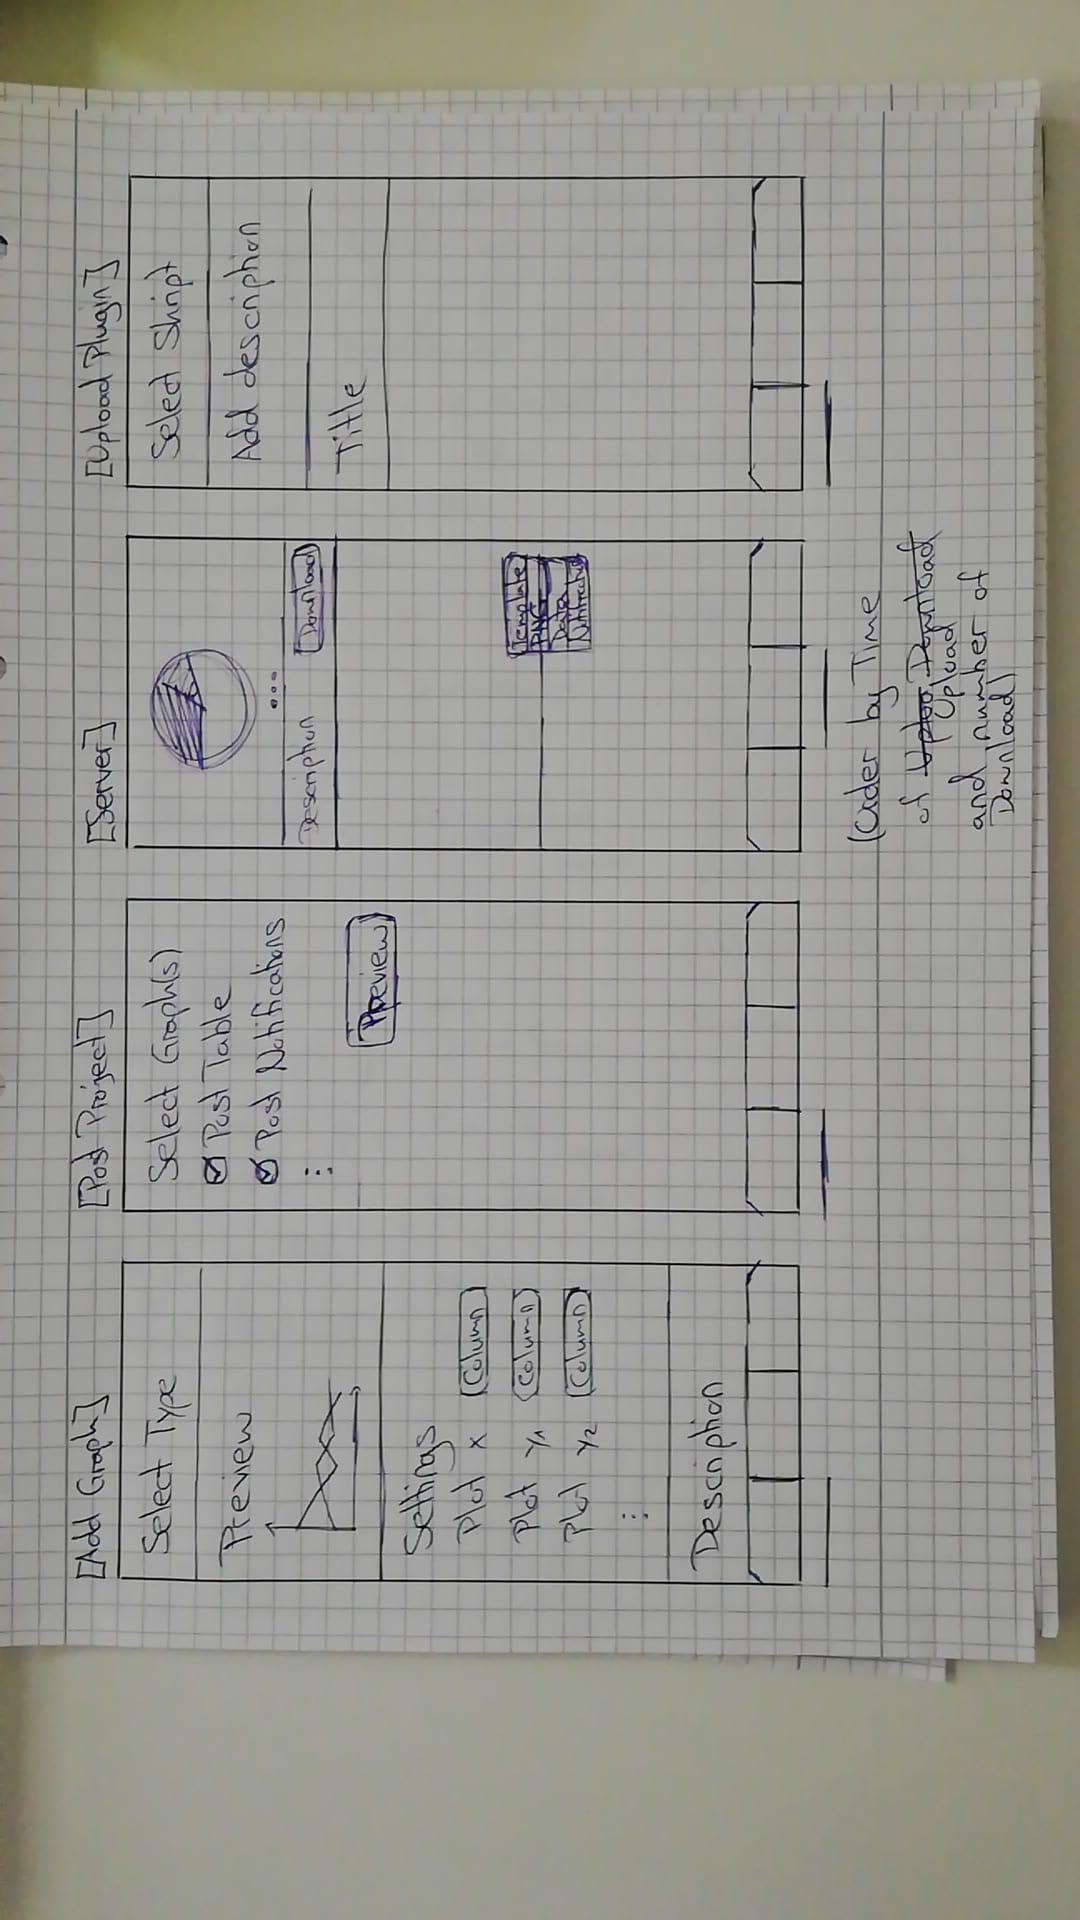 [Add Graph]
Select Type
Preview
Settings
Plot x Column
Plot y1 Column
Plot y2 Column
Description
[Post Project]
Select Graph(s)
Post Table
Post Notifications
Preview
[Server]
Description Download
Template
PNG
Data
(Order by Time
of Download
Upload
and number of
Download)
[Upload Plugin]
Select Skript
Add description
Title